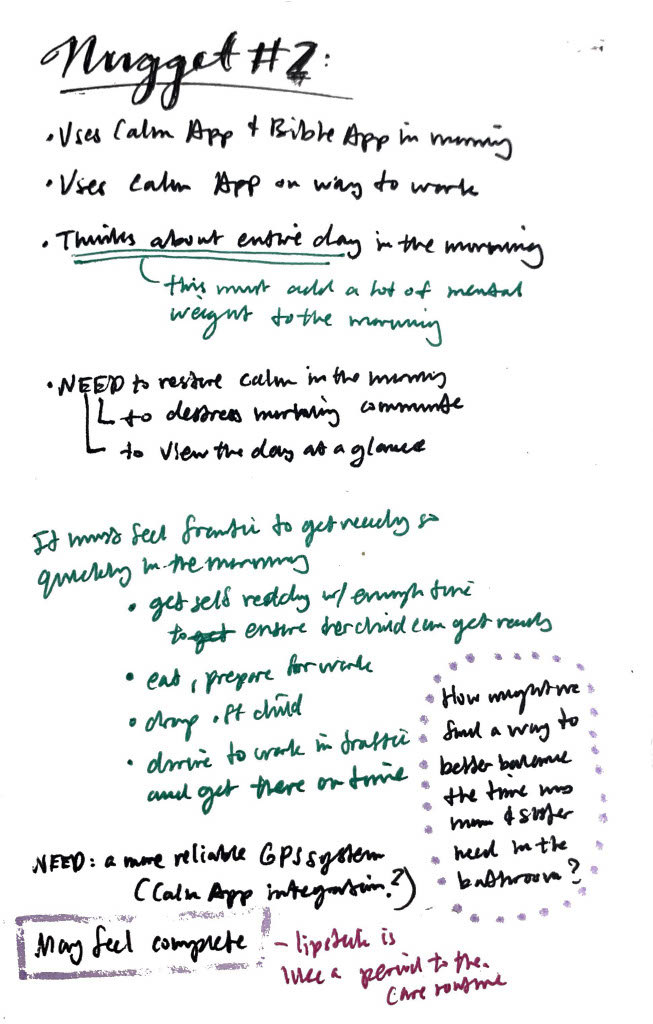 Nugget #2:
• Uses Calm App & Bible App in morning
• Uses Calm App on way to work
• Thinks about entire day in the morning
this must add a lot of mental
weight to the morning
• NEED to restore calm in the morning
to destress morning commute
to view the day at a glance
It must feel frantic to get ready so
quickly in the morning
• get self ready w/ enough time
to get ensure her child can get ready
• eat, prepare for work
• drop off child
• drive to work in traffic
and get there on time
How might we
find a way to
better balance
the time
mom & sister
need in the
bathroom?
NEED: a more reliable GPS system
(Calm App integration?)
May feel complete
- lipstick is
like a period to the
care routine